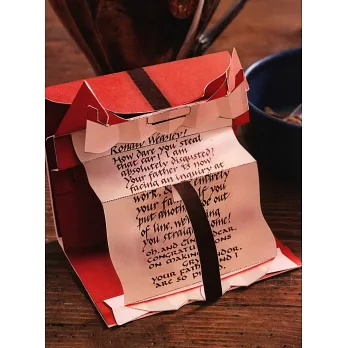 Ronald Weasley!
How dare you steal
that car? I am
absolutely disgusted!
Your father is now
facing an inquiry at
work, & entirely
your fa If you
put another toe out
of line, we
you straight home!
Oh, and Ginny dear,
congratulations
on making Gryffindor.
Your father and I
are so proud.